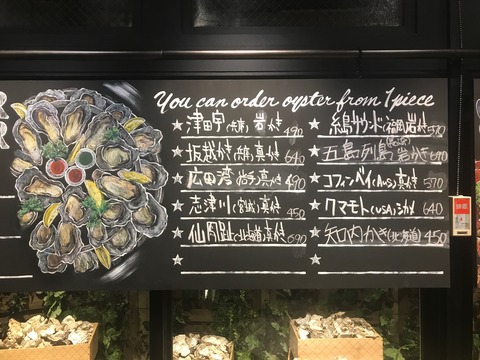 You can order oyster from 1 piece
★ 津田宇(兵庫)岩かき 490
★ 坂越かき(兵庫)真かき 640
★ 広田湾(岩手)真かき 490
★ 志津川(宮城)真かき 450
★ 仙鳳趾(北海道)真かき 690
★
★ 糸島サウンド(福岡)岩かき 570
★ 五島列島 岩かき 690
★ コフィンベイ(Aus)真かき 570
★ クマモト(USA)シカメ 640
★ 知内かき(北海道) 450
★